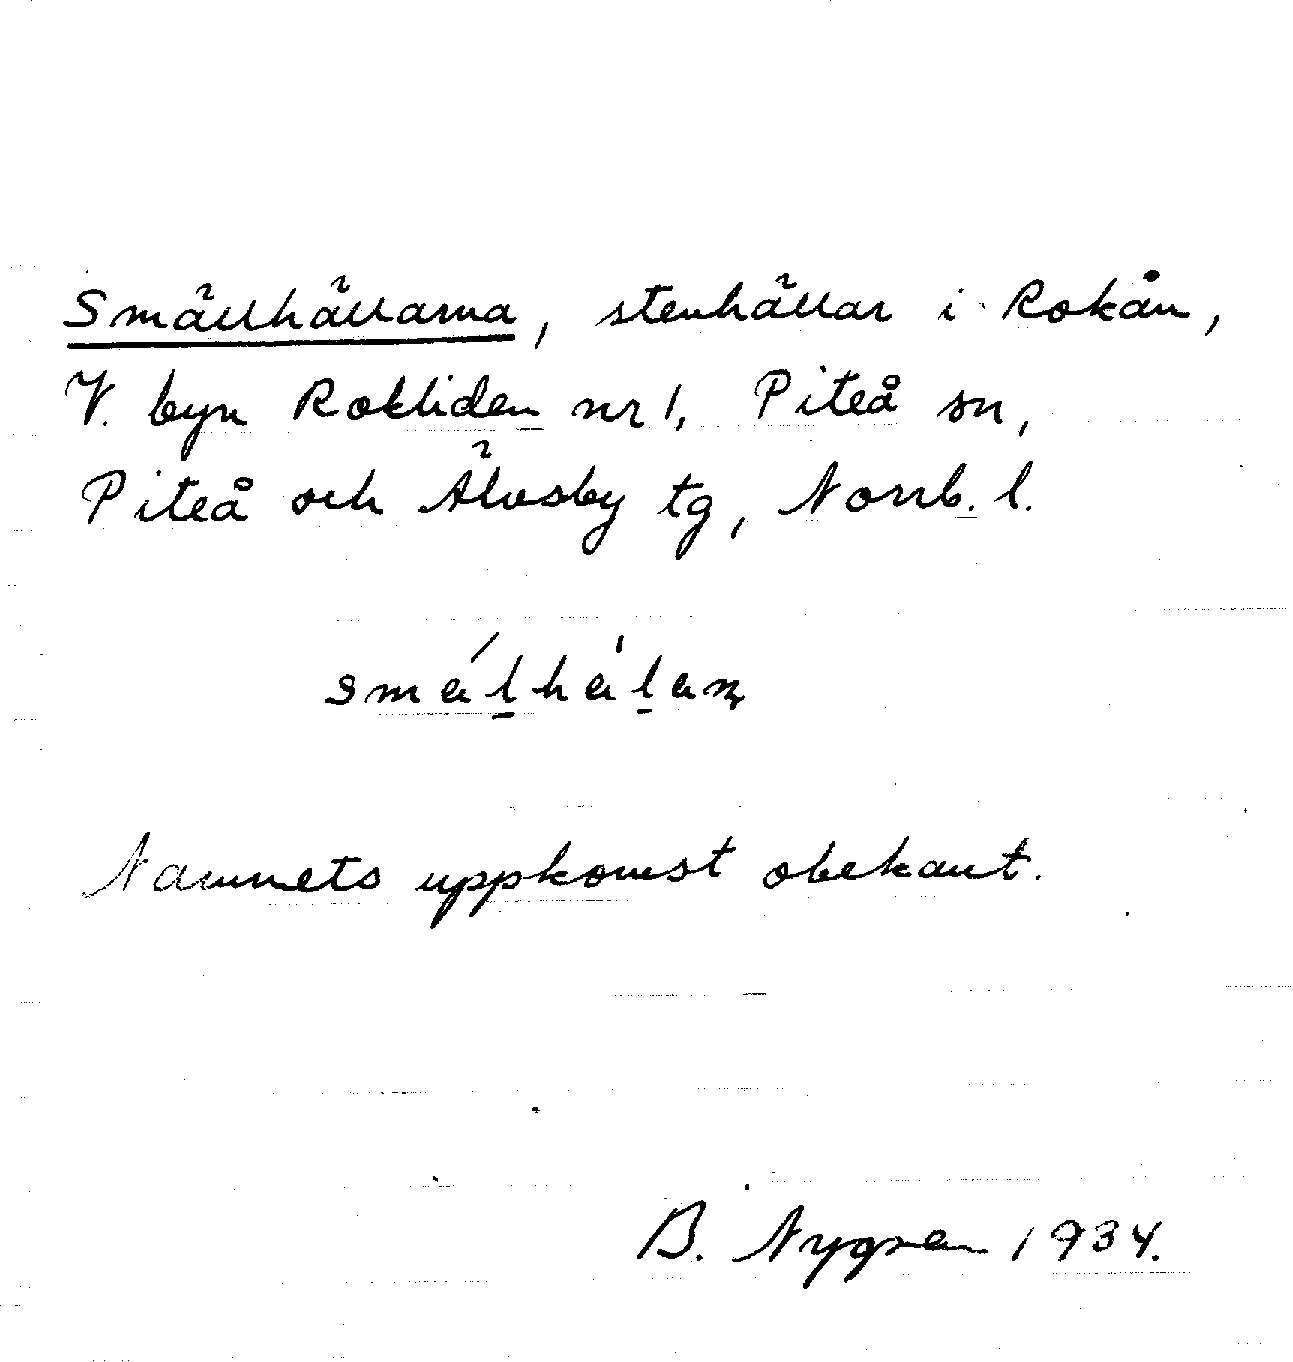 Smällhällarna, stenhällar i Rokån,
V. byn Rokliden nr 1, Piteå sn,
Piteå och Älvsby tg, Norrb. l.
smálhàlaɳ
Namnets uppkomst obekant.
B. Nygren 1934.